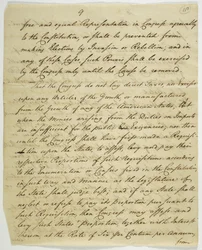 9
free and equal Representation in Congress agreeably
to the Constitution, or shall be prevented from
making Elections by Invasion or Rebellion, and in
any of these Cases such Powers shall be exercised
by the Congress only until the Cause be removed.
That the Congress do not lay direct Taxes
but when the Monies arising from the Duties on Imposts
are insufficient for the public Exigencies, nor then
until the Congress shall have first made a Requisi-
tion upon the States to assess levy and pay their
respective Proportions of such Requisitions according
to the Enumeration or Census fixed in the Constitution
in such Way and Manner as the Legislature of
the State shall judge best; and if any State shall
neglect or refuse to pay its Proportion pursuant to
such Requisition then Congress may assess and
levy such State's Proportion together with Interest
thereon at the Rate of Six per Centum per annum,
from